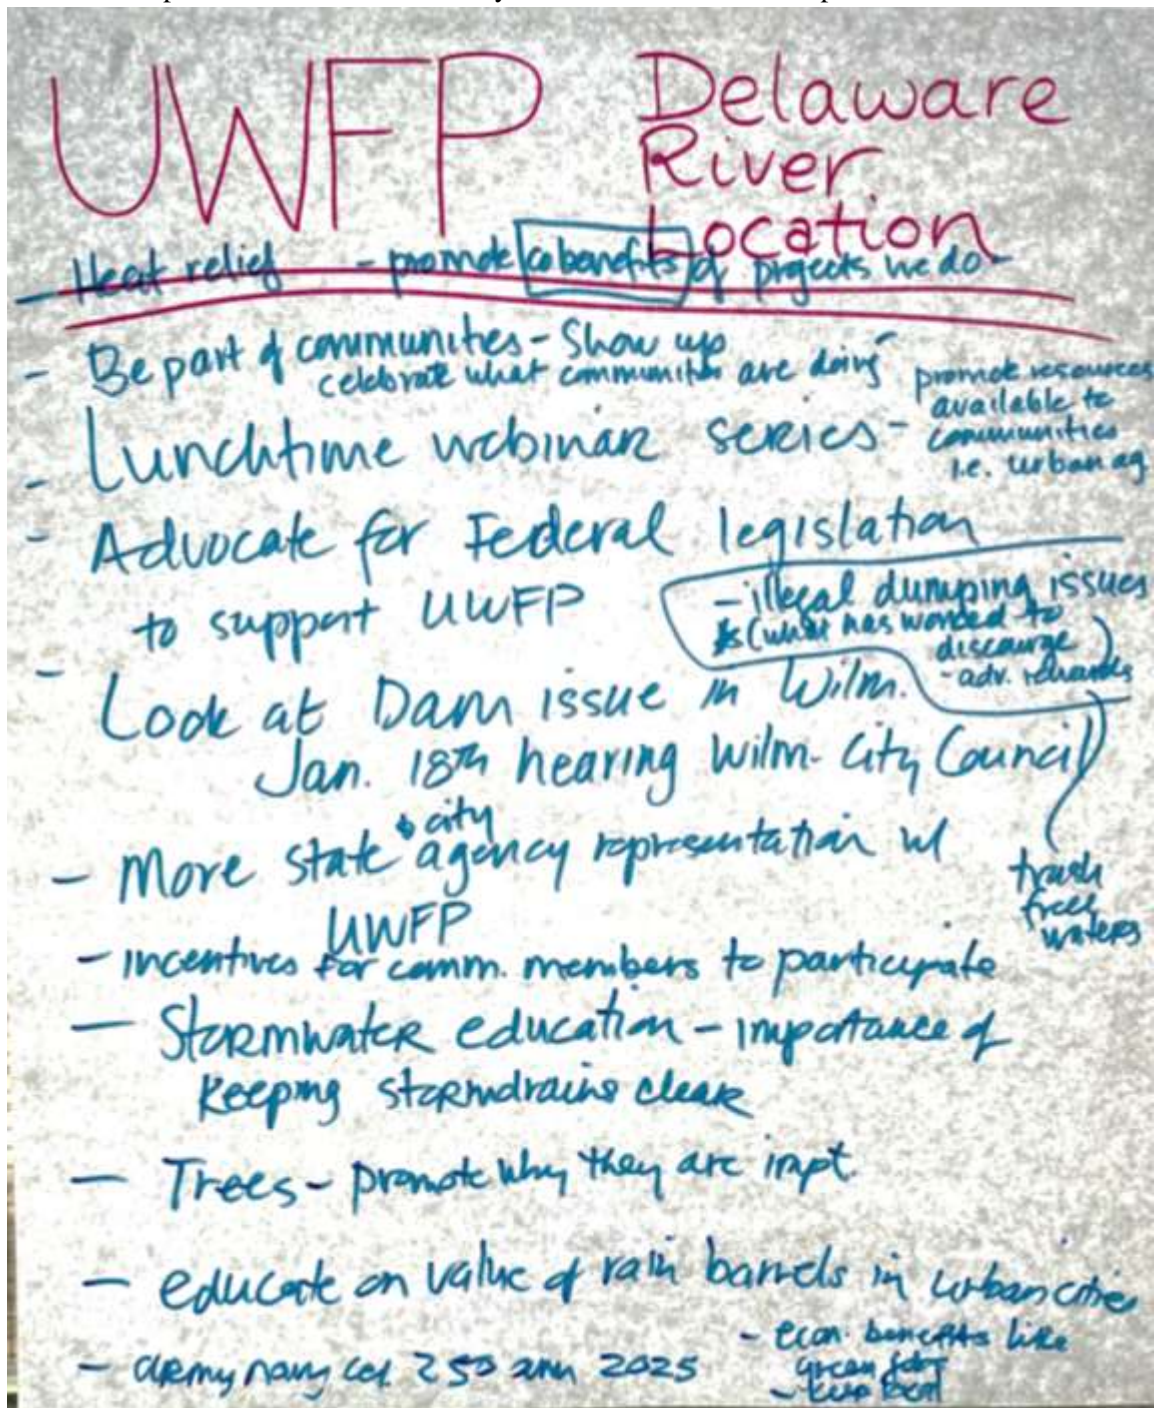 UWFP Delaware
River
Location
- Heat relief - promote cobenefits of projects we do -
- Be part of communities - Show up
celebrate what communities are doing
- Lunchtime webinar series -
promote resources
available to
communities
i.e. urban ag
- Advocate for Federal legislation
to support UWFP
- illegal dumping issues
(what has worked to
discourge)
- adv. rewards
trash
free
waters
- Look at Dam issue in Wilm.
Jan. 18th hearing Wilm. City Council
- More state & city agency representation w/
UWFP
- incentives for comm. members to participate
- Stormwater education - importance of
keeping stormdrains clear
- Trees - promote why they are impt.
- educate on value of rain barrels in urban cities
- econ. benefits like
green jobs
- keep local
- army navy 250 ann 2025